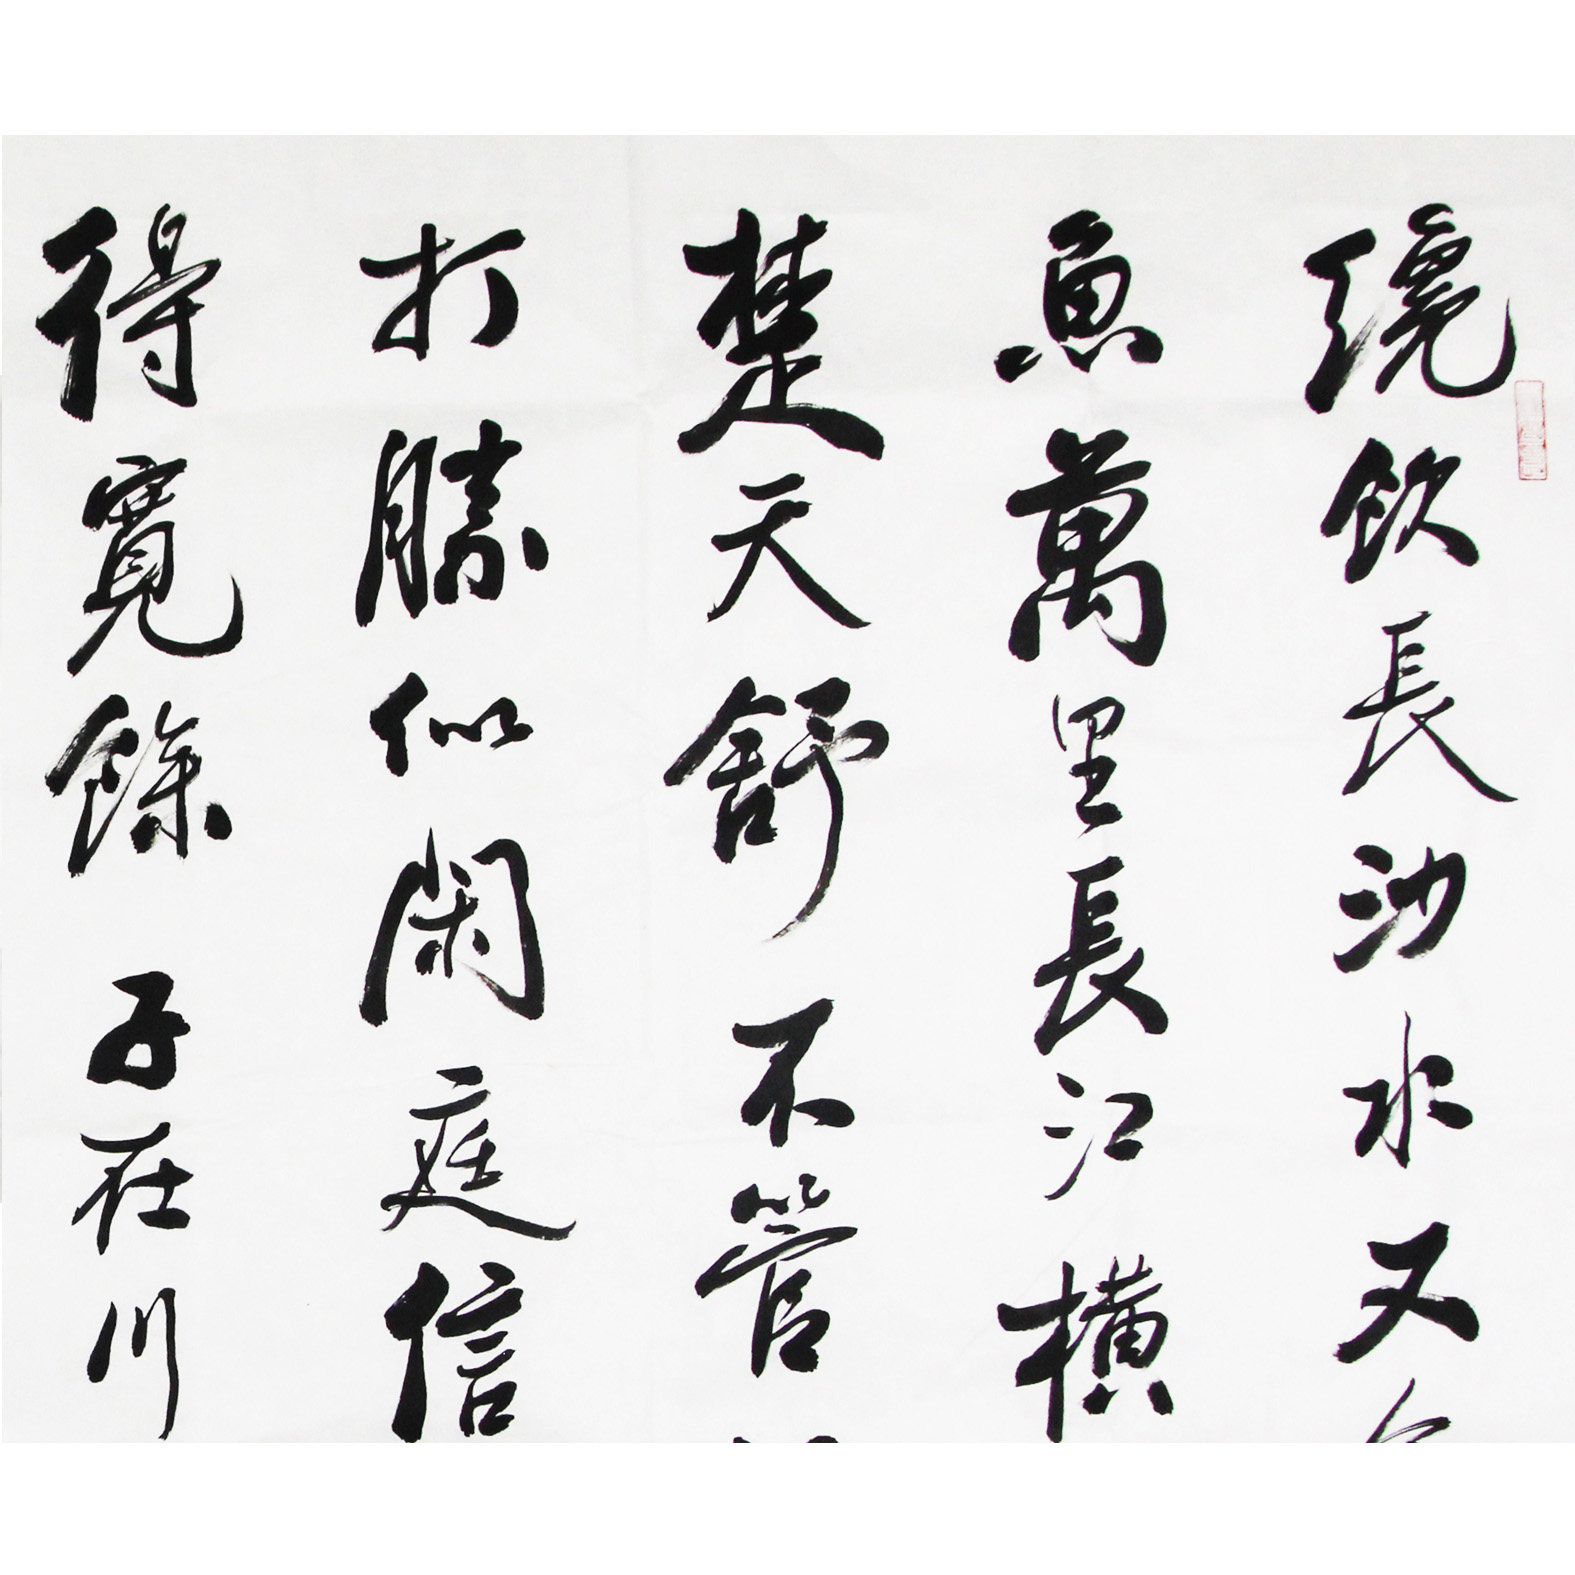 纔飲長沙水又
魚萬里長江橫
楚天舒不管
打勝似閑庭信
得寬餘子在川